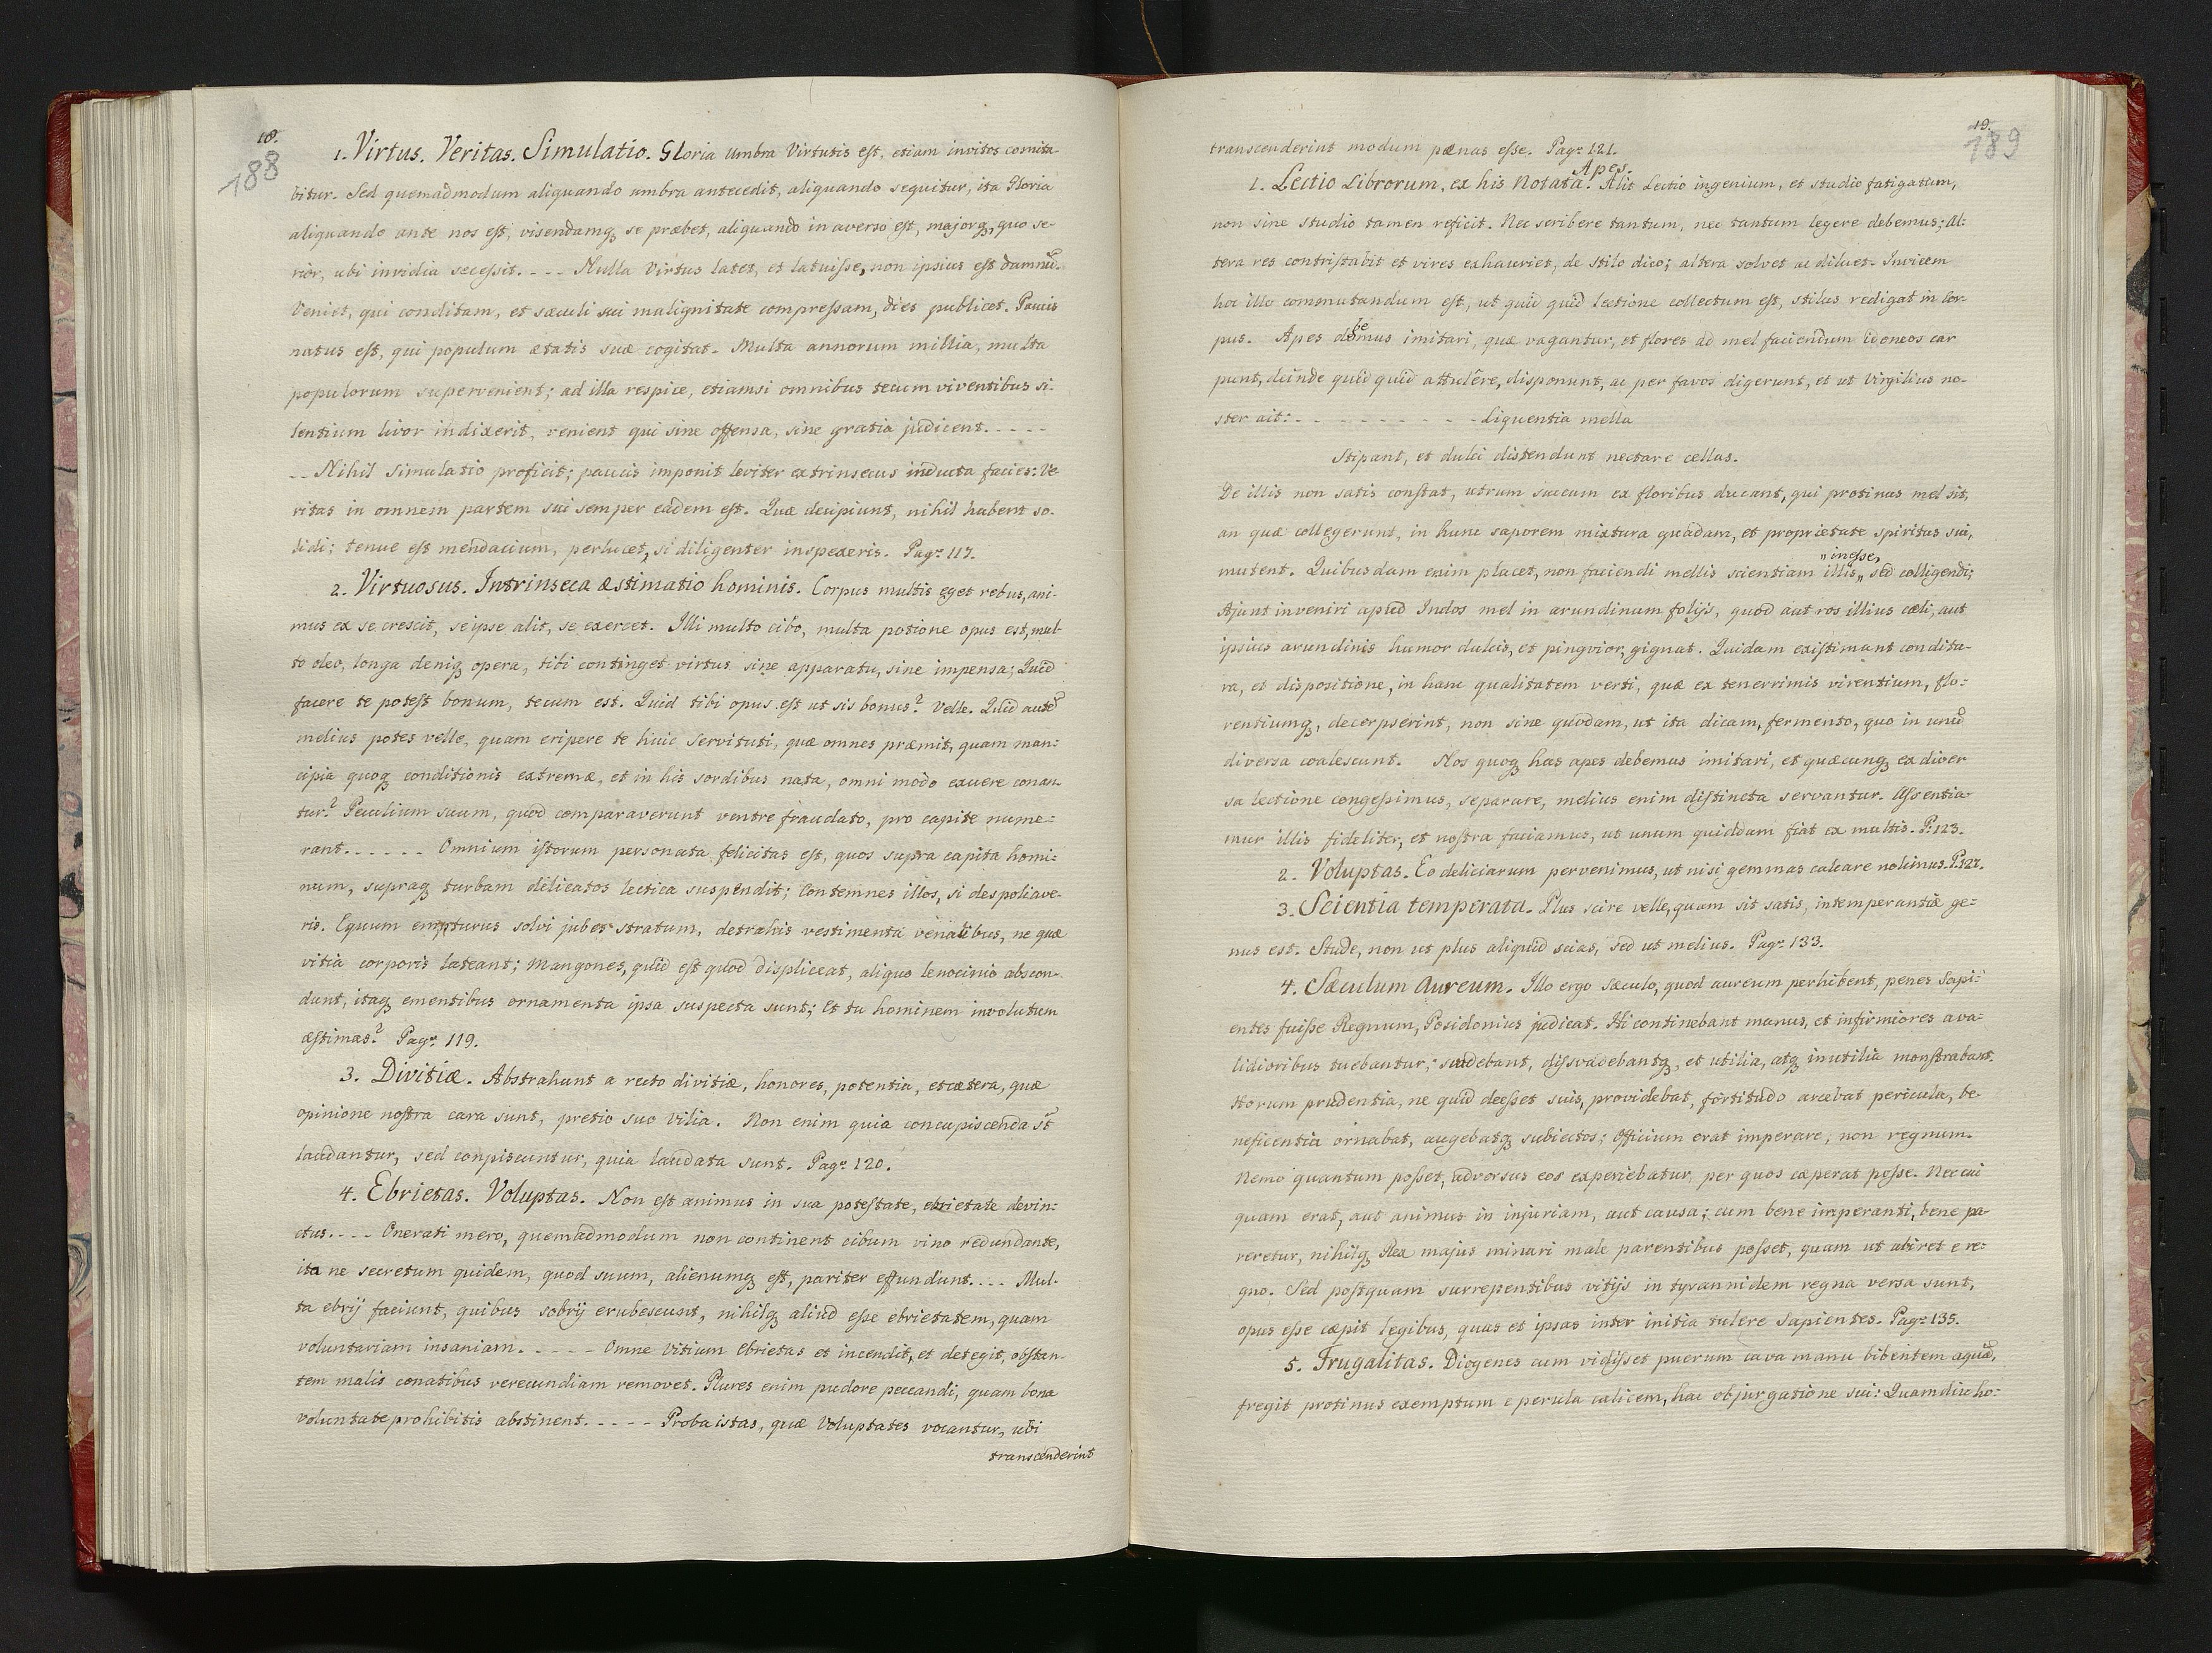 18.
188
1. Virtus. Veritas. Simulatio. Gloria umbra Virtutis est, etiam invitos comita-
bitur. Sed quemadmodum aliquando umbra antecedit, aliquando sequitur, ita Gloria
aliquando ante nos est, visendamq₃ se præbet, aliquando in averso est, majorq₃, quo se-
rior, ubi invidia secessit. ---- Nulla Virtus latet, et latuisse, non ipsius est damnū.
Veniet, qui conditam, et sæculi sui malignitate compressam, dies publicet. Paucis
natus est, qui populum ætatis suæ cogitat. Multa annorum millia, multa
populorum supervenient; ad illa respice, etiamsi omnibus tecum viventibus si-
lentium livor indixerit, venient qui sine offensa, sine gratia judicent. -----
-- Nihil simulatio proficit; paucis imponit leviter extrinsecus inducta facies: Ve
ritas in omnem partem sui semper eadem est. Quæ decipiunt, nihil habent so-
lidi; tenue est mendacium, perlucet, si diligenter inspexeris. Pagr 117.
2. Virtuosus. Intrinseca æstimatio hominis. Corpus multis eget rebus, ani-
mus ex se crescit, se ipse alit, se exercet. Illi multo cibo, multa potione opus est, mul-
to oleo, longa deniq₃ opera, tibi continget virtus sine apparatu, sine impensa; Quid
facere te potest bonum, tecum est. Quid tibi opus est ut sis bonus? Velle. Quid autē
melius potes velle, quam eripere te huic servituti, quæ omnes præmit, quam man:
cipia quoq₃ conditionis extremæ, et in his sordibus nata, omni modo exuere conan
tur? Peculium suum, quod comparaverunt ventre fraudato, pro capite nume:
rant. ------ Omnium istorum personata felicitas est, quos supra capita homi:
num, supraq₃ turbam delicatos lectica suspendit; Contemnes illos, si despoliave-
ris. Equum empturus solvi jubes stratum, detrahis vestimenta venalibus, ne quæ
vitia corporis lateant; Mangones, quid est quod displiceat, aliquo lenocinio abscon-
dunt, itaq₃ ementibus ornamenta ipsa suspecta sunt; Et tu hominem involutum
æstimas? Pagr 119.
3. Divitiæ. Abstrahunt a recto divitiæ, honores, potentia, et cætera, quæ
opinione nostra cara sunt, pretio suo vilia. Non enim quia concupiscenda st̄
laudantur, sed conpiscuntur, quia laudata sunt. Pagr 120.
4. Ebrietas. Voluptas. Non est animus in sua potestate, ebrietate devin:
ctus. ---- Onerati mero, quemadmodum non continent cibum vino redundante,
ita ne secretum quidem, quod suum, alienumq₃ est, pariter effundunt. --- Mul-
ta ebrij faciunt, quibus sobrij erubescunt, nihilq₃ aliud esse ebrietatem, quam
voluntariam insaniam. ----- Omne Vitium Ebrietas et incendit, et detegit, obstan-
tem malis conatibus verecundiam removet. Plures enim pudore peccandi, quam bona
voluntate prohibitis abstinent. ----- Proba istas, quæ Voluptates vocantur, ubi
transcenderint
19.
189
transcenderint modum pænas esse. Pagr 121.
1. Lectio Librorum, ex his Notata. Apes. Alit Lectio ingenium, et studio fatigatum,
non sine studio tamen reficit. Nec scribere tantum, nec tantum legere debemus; Al-
tera res contristabit et vires exhauriet, de stilo dico; altera solvet ac diluet. Invicem
hoc illo commutandum est, ut quid quid lectione collectum est, stilus redigat in Cor-
pus. Apes debemus imitari, quæ vagantur, et flores ad mel faciendum idoneos car
punt, deinde quid quid attulêre, disponunt, ac per favos digerunt, et ut Virgilius no-
ster ait: - - - - - - - - - - Liquentia mella
Stipant, et dulci distendunt nectare cellas.
De illis non satis constat, utrum succum ex floribus ducant, qui protinus mel sit,
an quæ collegerunt, in hunc saporem mixtura quadam, et proprietate spiritus sui,
mutent. Quibusdam enim placet, non faciendi mellis scientiam illis „inesse, sed colligendi;
Ajunt inveniri apud Indos mel in arundinum folijs, quod aut ros illius cœli, aut
ipsius arundinis humor dulcis, et pingvior, gignat. Quidam existimant condita-
ra, et dispositione, in hanc qualitatem verti, quæ ex tenerrimis virentium, flo:
rentiumq₃, decerpserint, non sine quodam, ut ita dicam, fermento, quo in unū
diversa coalescunt. Nos quoq₃ has apes debemus imitari, et quæcunq₃ ex diver
sa lectione congessimus, separare, melius enim distincta servantur. Assentia-
mur illis fideliter, et nostra faciamus, ut unum quiddam fiat ex multis. P. 123.
2. Voluptas. Eo deliciarum pervenimus, ut nisi gemmas calcare nolimus. P. 127.
3. Scientia temperata. Plus scire velle, quam sit satis, intemperantiæ ge:
nus est. Stude, non ut plus aliquid scias, sed ut melius. Pagr 133.
4. Sæculum Aureum. Illo ergo Sæculo, quod aureum perhibent, penes Sapi:
entes fuisse Regnum, Posidonius judicat. Hi continebant manus, et infirmiores a va=
lidioribus tuebantur, suadebant, dissvadebantq₃, et utilia, atq₃ inutilia monstrabant.
Horum prudentia, ne quid deesset suis, providebat, fortitudo arcebat pericula, be-
neficentia ornabat, augebatq₃ subiectos; Officium erat imperare, non regnum.
Nemo quantum posset, adversus eos experiebatur, per quos cæperat posse. Nec cui
quam erat, aut animus in injuriam, aut causa; cum bene imperanti, bene pa
reretur, nihilq₃ Rex majus minari male parentibus posset, quam ut abiret e re:
gno. Sed postquam surrepentibus vitijs in tyrannidem regna versa sunt,
opus esse cæpit legibus, quas et ipsas inter initia tulere Sapientes. Pagr 135.
5. Frugalitas. Diogenes cum vidisset puerum cava manu bibentem aquā,
fregit protinus exemptum e perula calicem, hac objurgatione sui: Quamdiu ho: